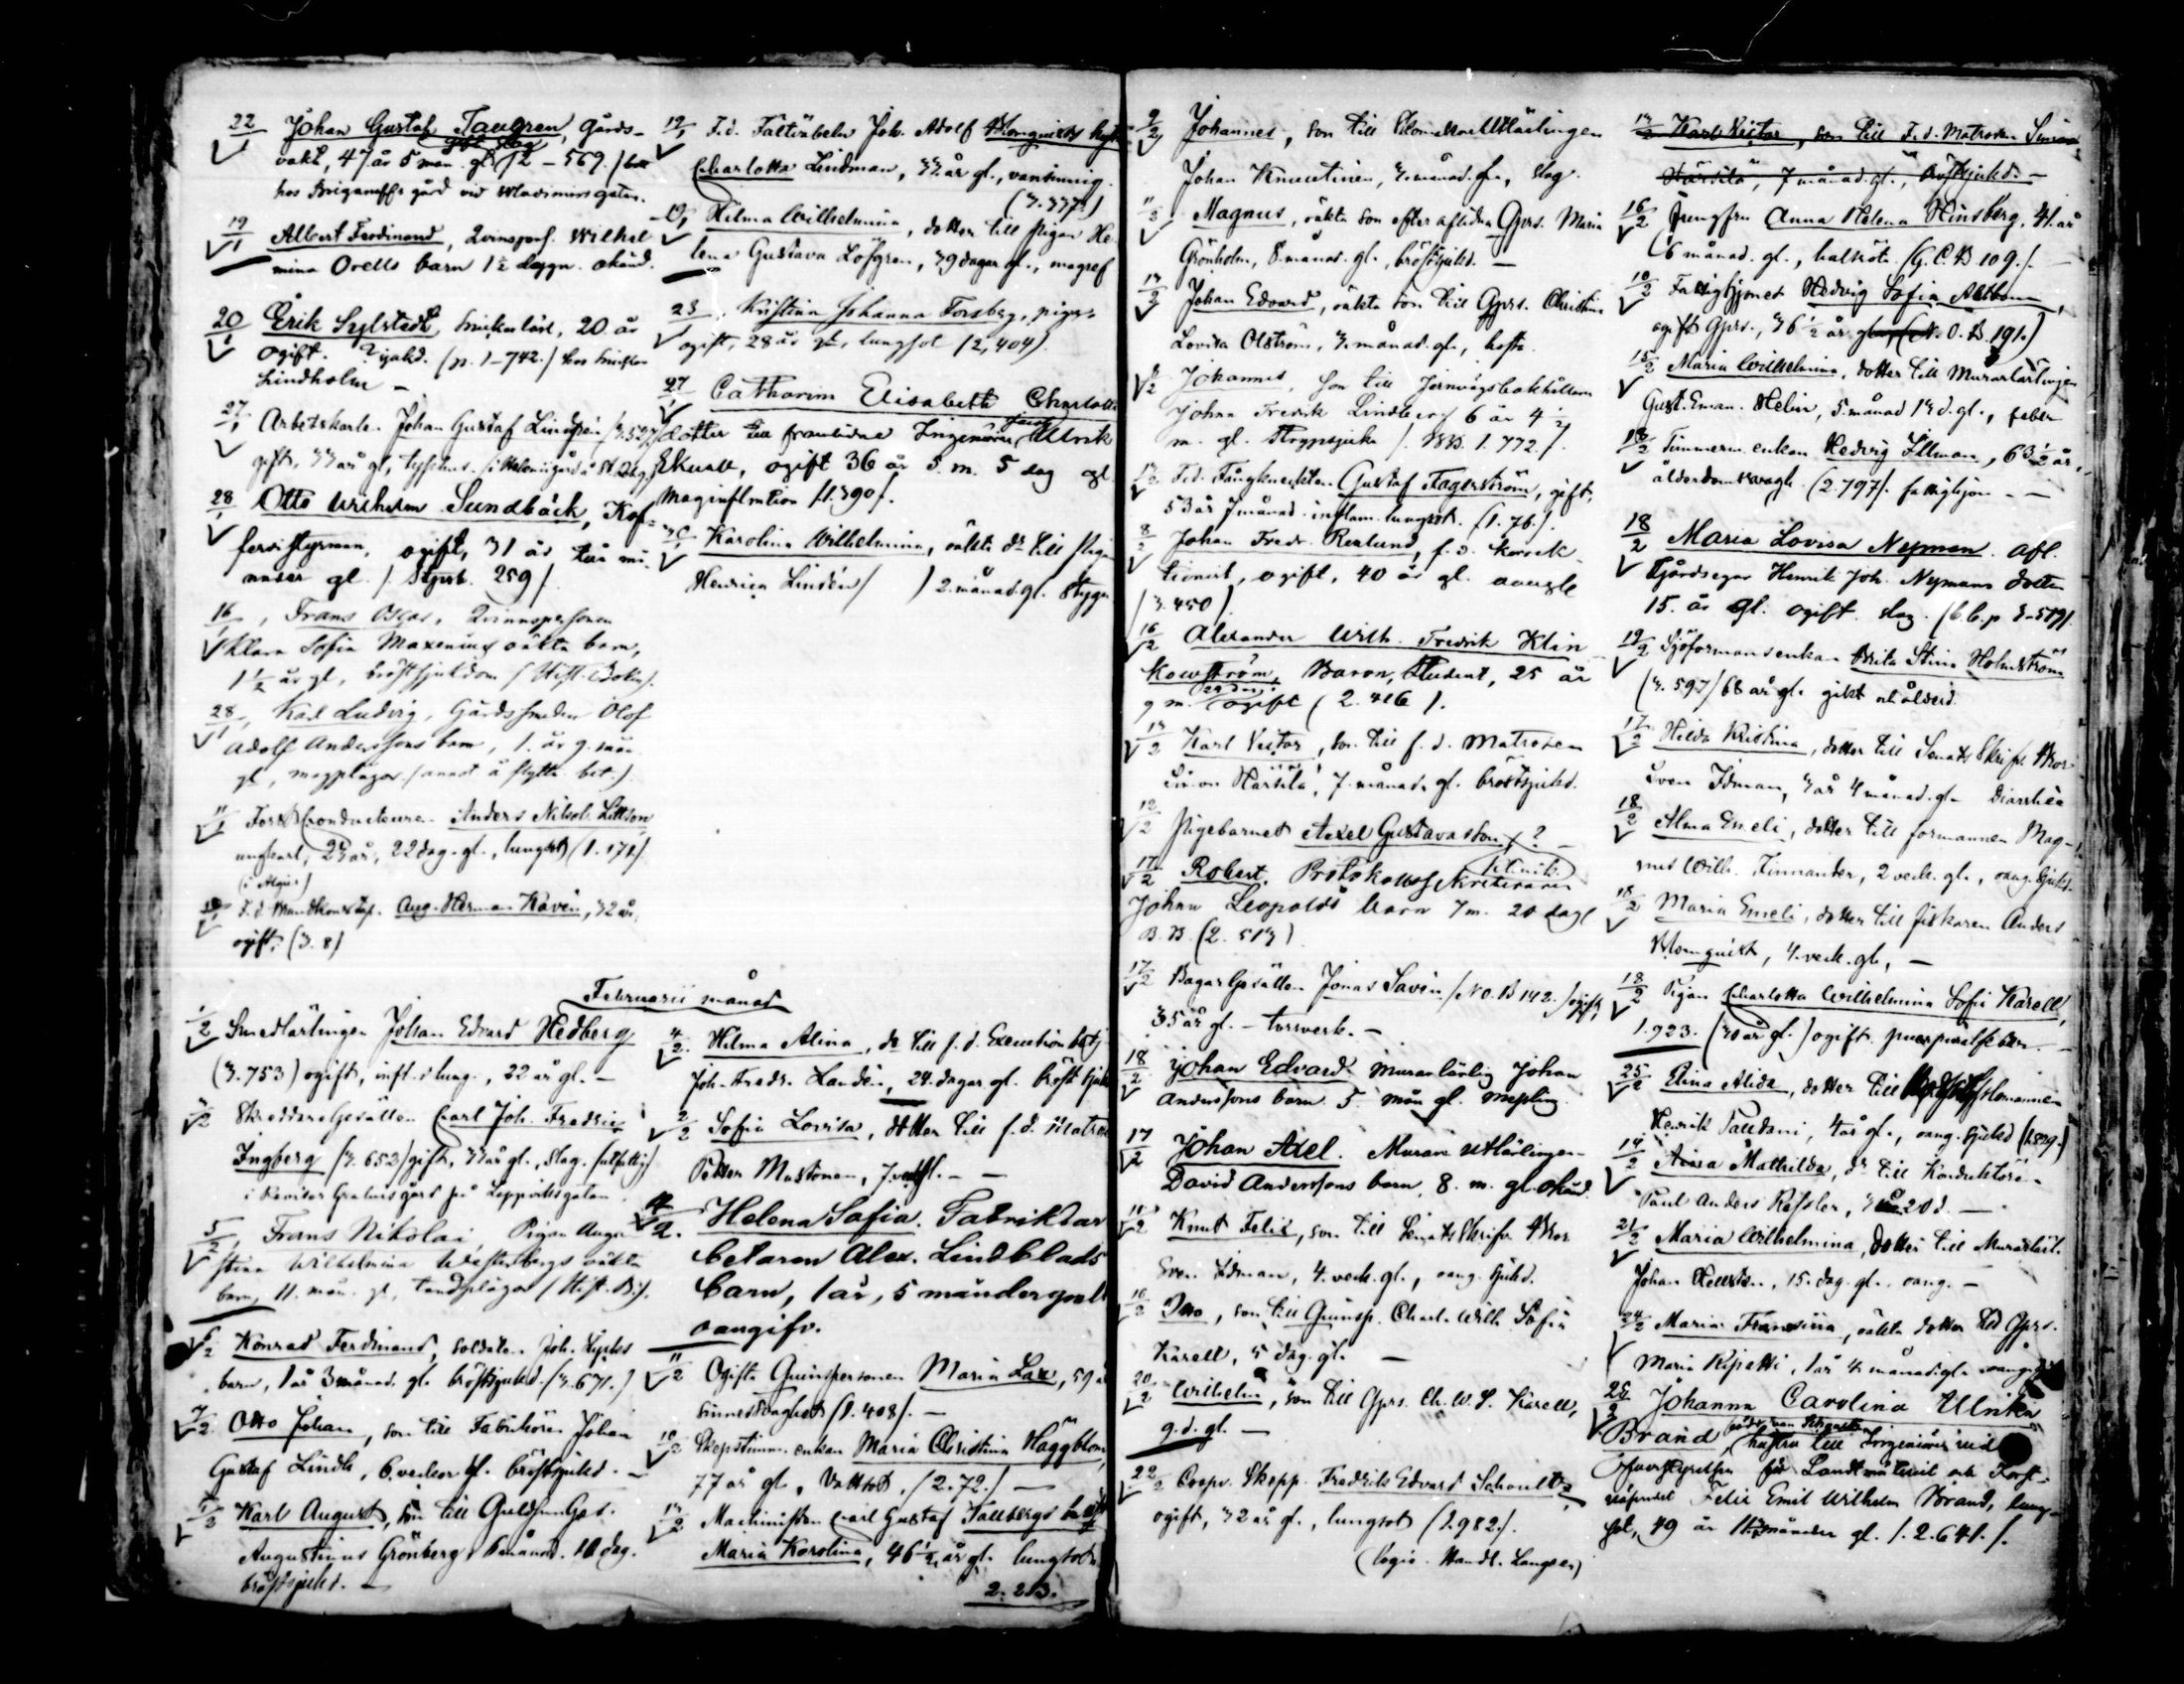 22/1 Johan Gustaf Taugren, gårds-
vakt, 47 år 5 mån. gl. slag (2-569.)
hos gård vid Wladimirsgatan.
19/1 Albert Ferdinand, Qvinspers. Wilhel
mina Orells barn 1½ dygn. okänd.
20/1 Erik Sylstedt, Snickarlärl. 20. år
ogift. (p. 1-742.) hos
Lindholm -
27/1 Arbetskarlen Johan Gustaf Lindgren
gift, 33 år gl, typhus.
28/1 Otto Wilhelm Sundbäck, Kof-
ferdistyrman, ogift, 31 år två må-
nader gl. / Styrb. 259 /.
16/1 Frans Oscar, Qvinnspersonen
Klara Sofia Maxenius oäkta barn,
1½ år gl, bröstsjukdom
28/1 Karl Ludvig, Gårdssmeden Olof
Adolf Anderssons barn, 1. år 9. mån
gl, magplågor. (annot å flytt. bet.)
11/1 Forst Conducteuren Anders Nikol. Littson
ungkarl, 23 år, 22 dag. gl., lungsot (1. 171)
(i Algier)
Aug. Herman Kaven, 32 år,
ogift. (3. 8)
19/1 F.d. Fältväbeln Joh. Adolf Blomqvists
Charlotta Lindman, 33. år gl., vansinnig.
(3. 377.)
19/1 Hilma Wilhelmina, dotter till pigan He-
lena Gustava Löfgren, 39 dagar gl., magref
23/1 Kristina Johanna Forsberg, piga,
ogift, 28 år gl, lungsot (2, 404).
27/1 Catharina Elisabeth Charlotta
dotter till framlidne Ingeniören Ulrik
ogift 36 år 5. m. 5 dag gl
Maginflmtion /1.390/.
Karolina Wilhelmina, oäkta dr till pigan
Henrica Lindén / ) 2. månad. gl.
Februarii månad
1/2 Smedlärlingen Johan Edvard Hedberg
(3. 753) ogift, infl. i lung., 22 år gl. -
2/2 Skreddare Gesällen Carl Joh. Fredric
Ingberg (3. 652) gift, 33 år gl., slag.
i gård på Loppiviksgatan.
5/2 Frans Nikolai, Pigan Augu
stina Wilhelmina Westerbergs oäkta
barn, 11. mån. gl, tandplågor
6/2 Konrad Ferdinand, soldaten Joh.
barn, 1 år 3 månad. gl. bröstsjukd. (3. 671.)
7/2 Otto Johan, son till Fabrikören Johan
Gustaf Lindh, 6. veckor gl. bröstsjukd. -
Karl August, son till Guldsm.Ges.
Augustinus Grönberg, 6 månad. 10 dag.
bröstsjukd. -
4/2 Hilma Alina, dr till f. d. Exeecution betj.
Joh. Fredr. Landén, 24. dagar gl. bröst sjukd
2/2 Sofia Lovisa, dotter till f.d. Matros
Petter Mustonen, 7. veck gl. -
Helena Sofia. Fabriksar
betaren Alex. Lindblads
barn, 1 år, 5 månder gml
oangifv.
11/2 Ogifta Qvinspersonen Maria Lax, 59 år
sinnessvaghet (1. 408). -
10/2 Skepstimm. enkan Maria Christina Häggblom,
77 år gl., Vattsot. (2. 72.) -
13/2 Machinisten Carl Gustaf Tallbergs
Maria Karolina, 46½ år gl. lungsot
2. 23.
9/2 Johannes, son till Blommor
Johan Knuutinen, 3. månad. gl., slag.
11/2 Magnus, oäkta son efter aflidna Qprs. Maria
Grönholm, 8. månad. gl., bröstsjukd. -
13/2 Johan Edvard, oäkta son till Qprs. Christina
Lovisa Olström, 3. månad. gl., hosta.
Johannes, son till Jernvägsbokhållaren
Johan Fredrik Lindberg 6 år 4½
m. gl. Strypsjuka /. 1. 772 /.
F.d. Fångknekten Gustaf Fagerström, gift,
53 år 7 månad. inflam. lungsot. (1. 76.).
8/2 Johan Fredr. Renlund, f. d. korrek-
tionist, ogift, 40 år gl. oangt
(3. 450)
16/2 Alexander Wilh. Fredrik Klin
kowström, Baron, Student, 25 år
9 m. 29 dag. ogift (2. 416).
13/2 Karl Victor, son till f. d. Matrosen
Simon Härsilä, 7. månad. gl. bröstsjukd.
12/2 Pigebarnet Axel Gustavasson, ?
17/2 Robert. Protokollssekreteraren
Johan Leopolds barn 7 m. 20 dag
B. B. (2. 513)
17/2 Bagar Gesällen Jonas Savén / N.O.B 142. / ogift,
35 år gl. - torrverk. -
18/2 Johan Edvard Murarlärling Johan
Anderssons barn 5. mån gl. messling
17/2 Johan Axel. Murarelärlingen
David Anderssons barn, 8. m. gl. okänd.
Knut Felix, son till Senats Skrifv.
Sven Idman, 4. veck. gl., oang. sjukd.
16/2 Otto, son till Qvinsp. Charl. Wilh. Sofia
Karell, 5 dag. gl. -
20/2 Wilhelm, son till Qprs. Ch. W. S. Karell,
9. d. gl. -
22/2 Coopv. Skepp. Fredrik Edvard Schoultz,
ogift, 32 år gl., lungsot (2. 982.).
(logis Handl. Langeen)
13/2 Karl Victor, son till F. d. Matrosen Simon
Härsilä, 7 månad. gl., bröstsjukd. -
16/2 Jungfru Anna Helena Hinsberg, 41. år
6 månad. gl., halsröta (G.C.B 109.). -
10/2 Fattighjonet Hedvig Sofia Ahlbom,
ogift Qprs., 36½ år. gl. (N. O. B 191.)
15/2 Maria Wilhelmina, dotter till Murarlärlingen
Gust. Eman. Helin, 5. månad 13 d. gl., feber
Timmerm. enkan Hedvig Illman, 63½ år,
ålderdomssvagh. (2. 797). fattighjon - -
18/2 Maria Lovisa Nyman. Afl.
gårdsegar Henrik Joh. Nymans dotter
15. år gl. ogift. slag.
19/2 Sjöformansenkan Brita Stina Holmström
(3. 597) 68 år gl. gikt och ålderd.
17/2 Hilda Kristina, dotter till Senats Skrifv.
Sven Idman, 3 år 4 månad. gl. Diarrhea
18/2 Alma Emeli, dotter till formannen Mag-
nus Wilh. Finnander, 2 veck. gl., oang. sjukd.
18/2 Maria Emeli, dotter till fiskaren Anders
Blomqvist, 4. veck. gl., -
18/2 Pigan Charlotta Wilhelmina Sofia Karell,
1. 923. (30 år gl.) ogift. puerperalfeber. -
25/2 Elina Alida, dotter till
Henrik Paldani, 4 år gl., oang. sjukd
14/2 Aina Mathilda, dr till Konduktören
Paul Anders Kessler, 20 d. -
21/2 Maria Wilhelmina, dotter till Murarlärl.
Johan Hellsten, 15. dag. gl. oang. -
24/2 Maria Fransina, oäkta dotter till Qprs.
Maria Kipatti, 1 år 4 månad. gl.
Johanna Carolina Ulrika
Brand, hustru till Ingeniören vid
Öfverstyrelsen för Landtmäteriet och Forst-
väsendet Felix Emil Wilhelm Brand, lung-
sot, 49 år månader gl. /. 2. 641. /.